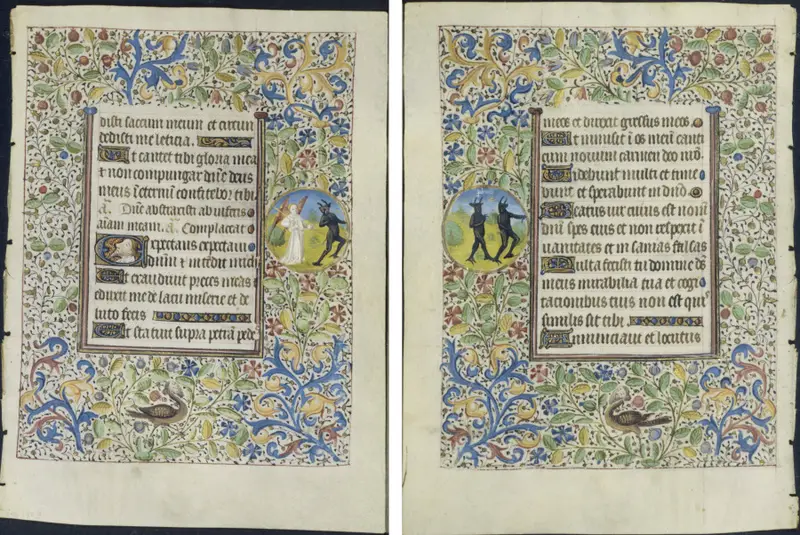 disti saccum meum et circum
dedisti me leticia.
Ut cantet tibi gloria mea
⁊ non compungar dn̄e deus
meus ī eternū confitebor tibi
A. Dn̄e abstraxisti ab inferis
aīam meam. A. Complaceat
Expectans expectaui
dnm̄ et intēdit michi
Et exaudiuit preces meas et
eduxit me de lacu miserie et de
luto fecis
Et statuit supra petrā pede
meos et direxit gressus meos
Et inmisit ī os meū canti
cum nouum carmen deo nr̄o
Uidebunt multi et time
bunt et sperabunt in dn̄o
Beatus uir cuius est nomē
dn̄i spes eius et non respexit ī
uanitates et in sanias falsas
Multa fecisti tu domine ds̄
meus mirabilia tua et cogi
tacionibus tuis non est qui
similis sit tibi
Annunciaui et locutus